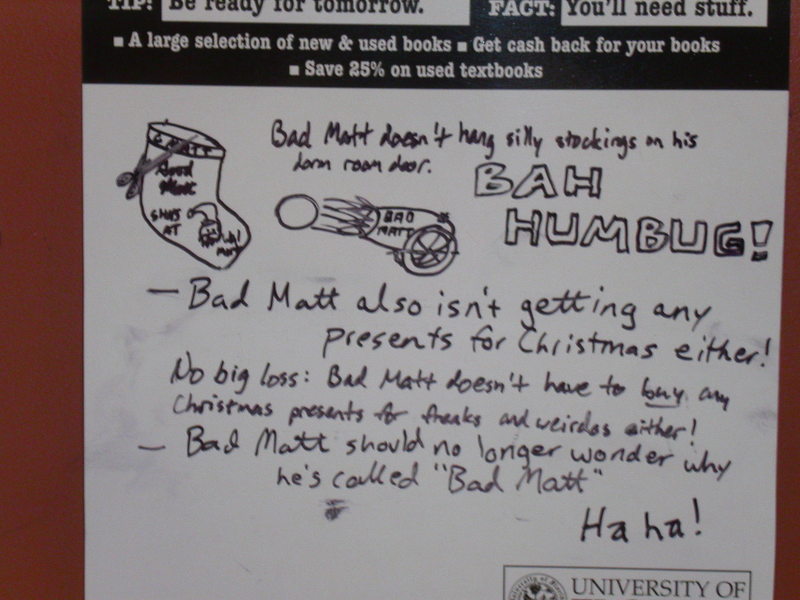 TIP: Be ready for tomorrow. FACT: You'll need stuff.
▪ A large selection of new & used books ▪ Get cash back for your books
▪ Save 25% on used textbooks
Bad Matt doesn't hang silly stockings on his
dorm room door.
BAH
HUMBUG!
Good
Matt
SHOTS
AT
BAD
MATT
— Bad Matt also isn't getting any
presents for Christmas either!
No big loss: Bad Matt doesn't have to buy any
Christmas presents for freaks and weirdos either!
— Bad Matt should no longer wonder why
he's called "Bad Matt"
Ha ha!
UNIVERSITY OF